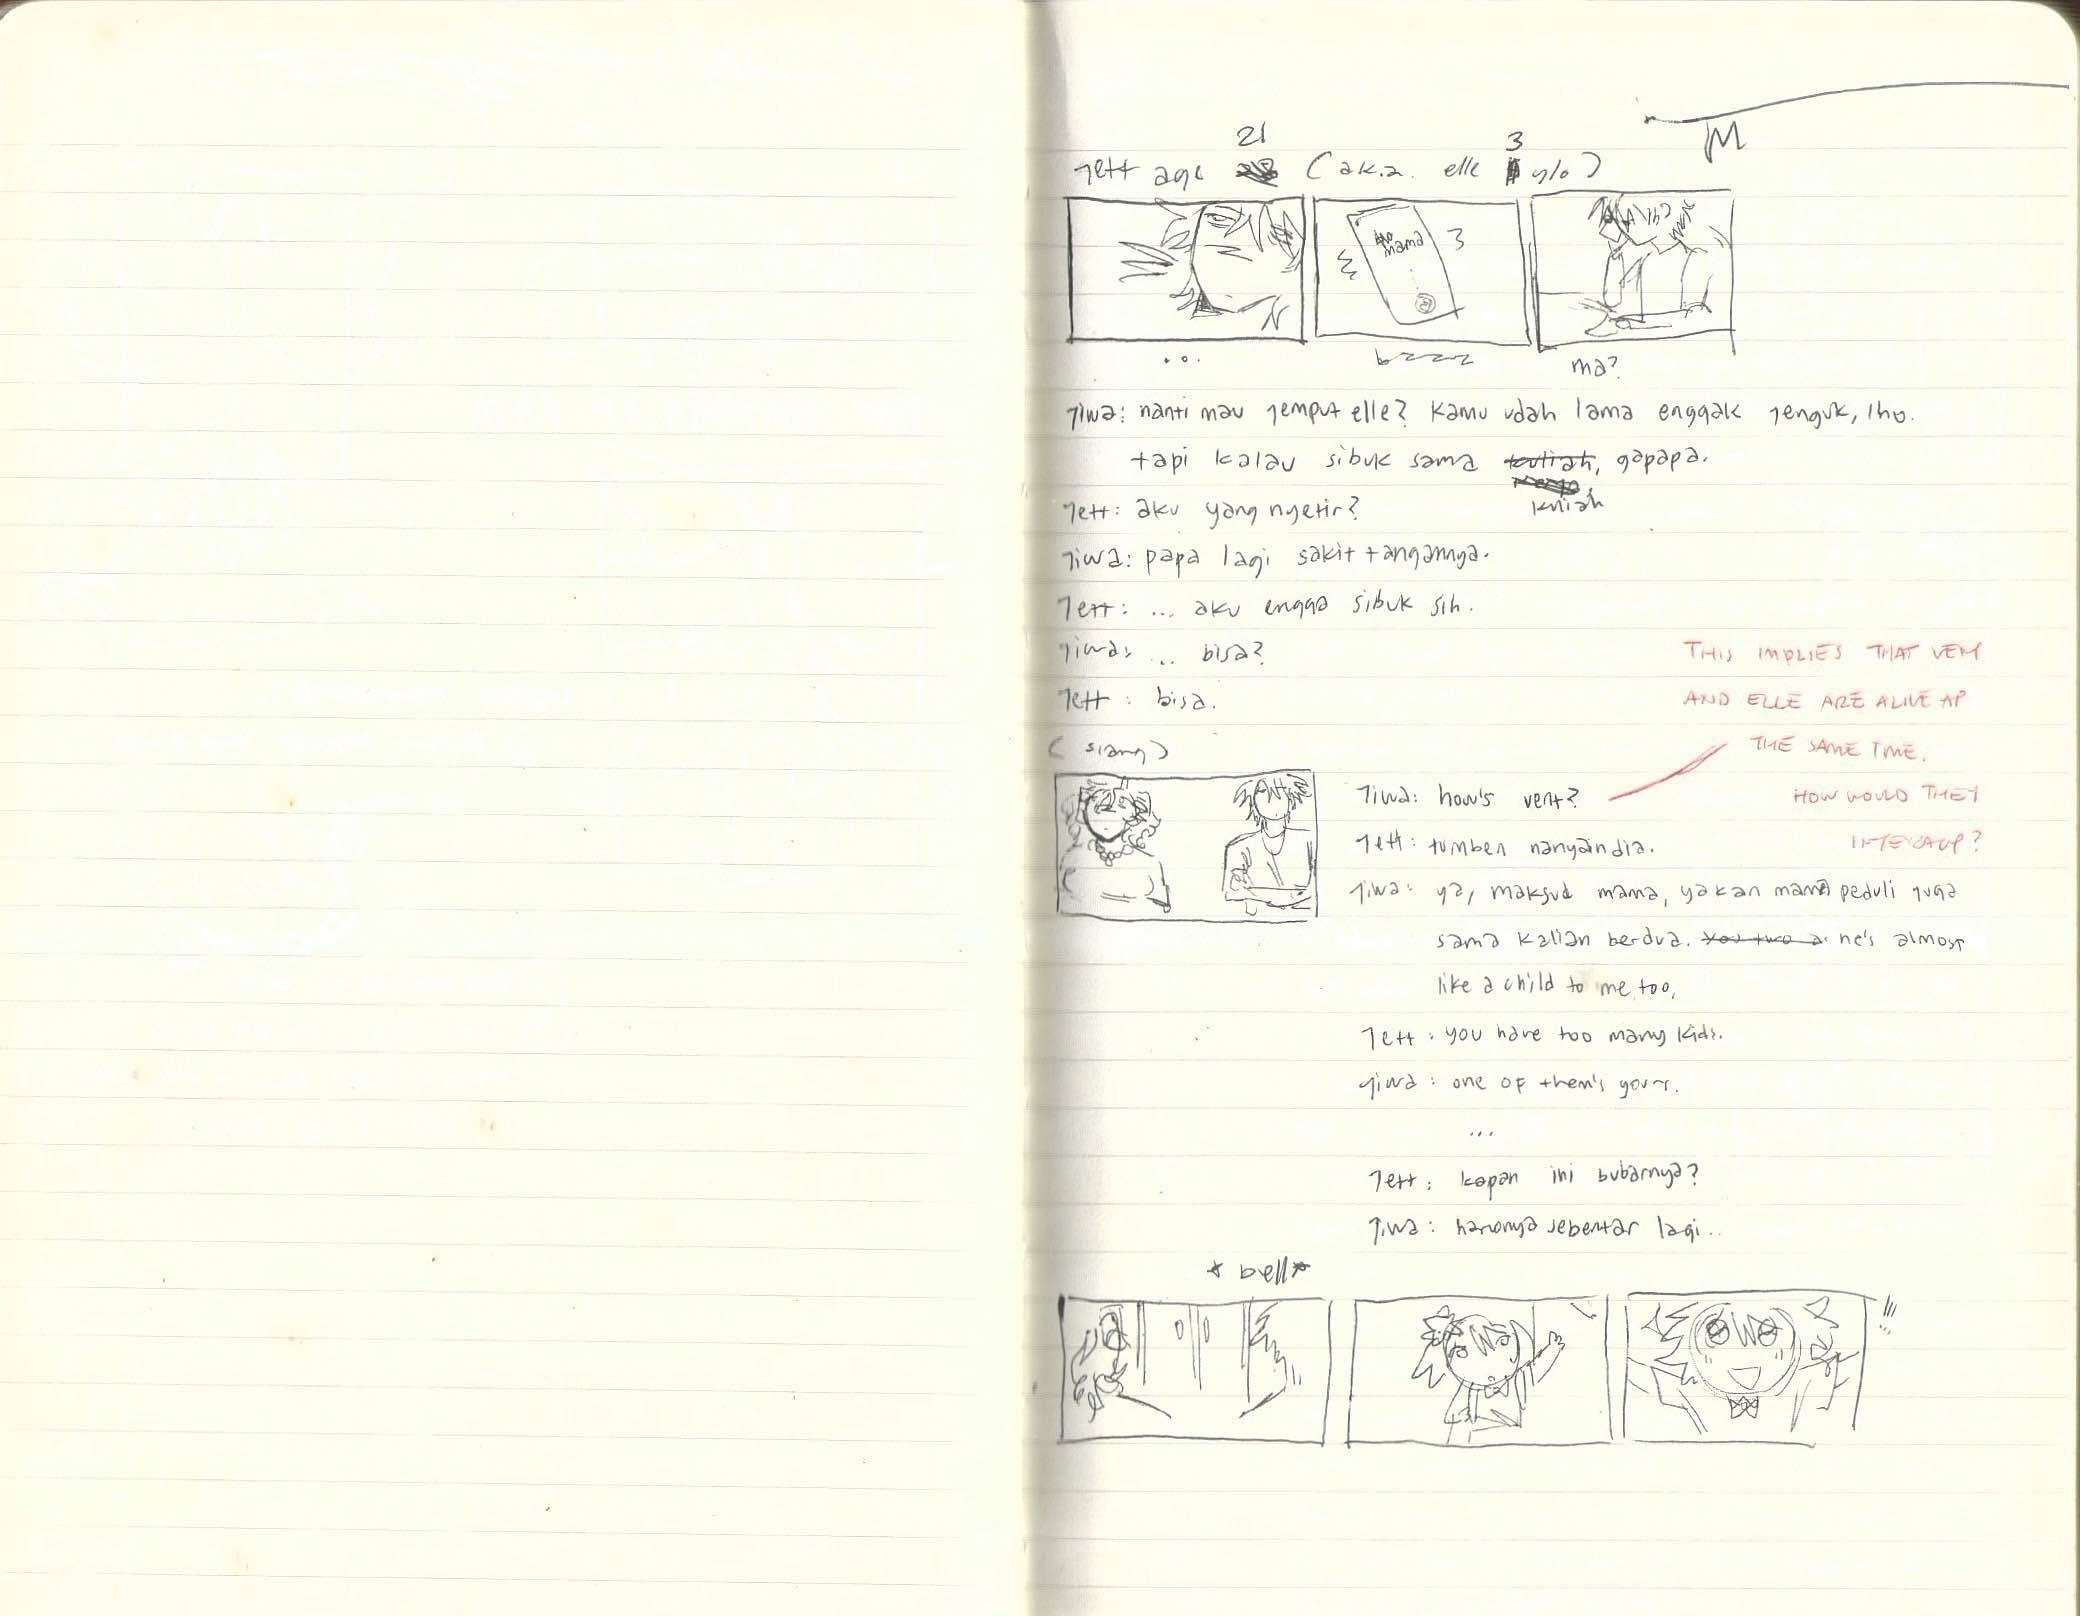 21
3
Jett age (a.k.a. elle y/o)
mama
...
bzzzz
ma?
Jiwa: nanti mau jemput elle? kamu udah lama enggak jenguk, lho.
tapi kalau sibuk sama kuliah, gapapa.
kuliah
Jett: aku yang nyetir?
Jiwa: papa lagi sakit tangannya.
Jett: ... aku engga sibuk sih.
Jiwa: ... bisa?
Jett: bisa.
(siang)
Jiwa: how's vent?
Jett: tumben nanyain dia.
Jiwa: ya, maksud mama, ya kan mama peduli juga
sama kalian berdua. you two a he's almost
like a child to me, too.
Jett: you have too many kids.
Jiwa: one of them's yours.
...
Jett: kapan ini bubarnya?
Jiwa: harusnya sebentar lagi..
THIS IMPLIES THAT VENT
AND ELLE ARE ALIVE AT
THE SAME TIME.
HOW WOULD THEY
INTERACT?
*bell*